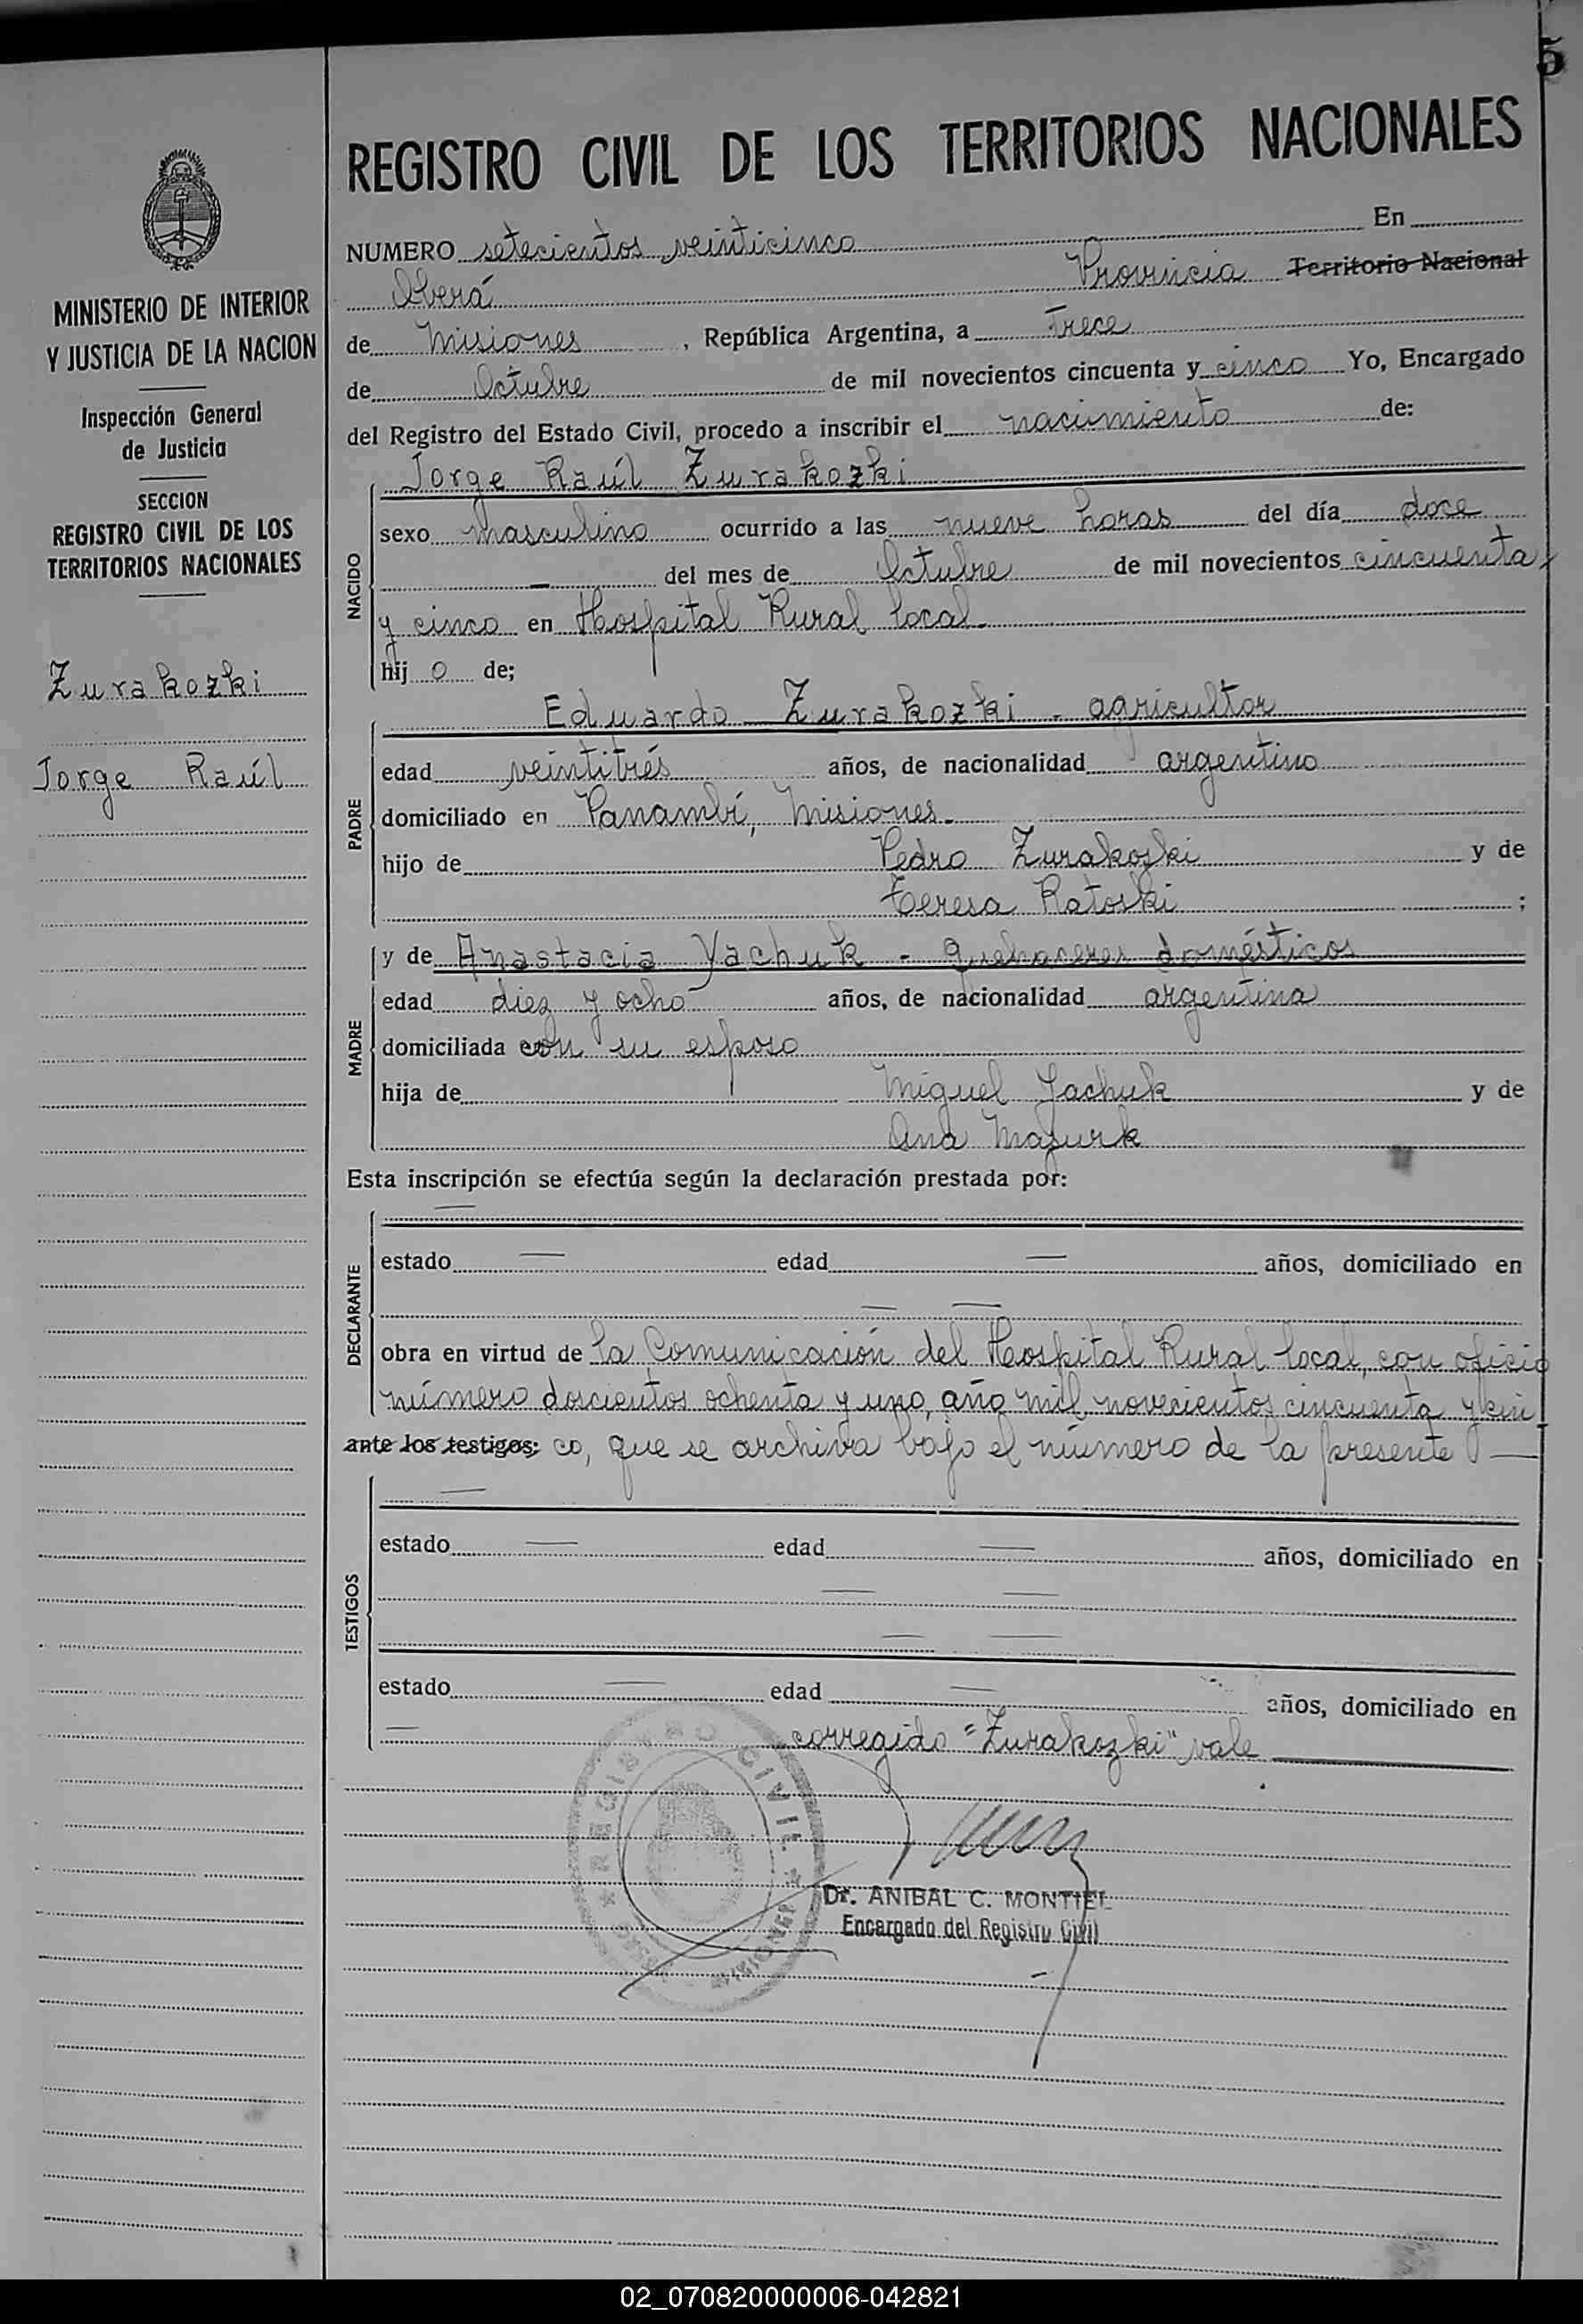 5
REGISTRO CIVIL DE LOS TERRITORIOS NACIONALES
NUMERO setecientos veinticinco En
Oberá Provincia Territorio Nacional
de Misiones, República Argentina, a Trece
de Octubre de mil novecientos cincuenta y cinco Yo, Encargado
del Registro del Estado Civil, procedo a inscribir el nacimiento de:
NACIDO
Jorge Raúl Zurakozki
sexo masculino ocurrido a las nueve horas del día doce
— del mes de Octubre de mil novecientos cincuenta
y cinco en Hospital Rural local.
hij o de;
PADRE
Eduardo Zurakozki - agricultor
edad veintitrés años, de nacionalidad argentino
domiciliado en Panambí, Misiones.
hijo de Pedro Zurakozki y de
Teresa Ratoski ;
MADRE
y de Anastacia Yachuk - Quehaceres domésticos
edad diez y ocho años, de nacionalidad argentina
domiciliada con su esposo
hija de Miguel Yachuk y de
Ana Mazurk
Esta inscripción se efectúa según la declaración prestada por:
DECLARANTE
—
estado — edad — años, domiciliado en
— —
obra en virtud de la Comunicación del Hospital Rural local, con oficio
número doscientos ochenta y uno, año mil novecientos cincuenta y cin
ante los testigos: co, que se archiva bajo el número de la presente —
TESTIGOS
—
estado — edad — años, domiciliado en
— —
— —
estado — edad — años, domiciliado en
— corregido "Zurakozki" vale
REGISTRO CIVIL
MISIONES
Dr. ANIBAL C. MONTIEL
Encargado del Registro Civil
MINISTERIO DE INTERIOR
Y JUSTICIA DE LA NACION
Inspección General
de Justicia
SECCION
REGISTRO CIVIL DE LOS
TERRITORIOS NACIONALES
Zurakozki
Jorge Raúl
02_070820000006-042821